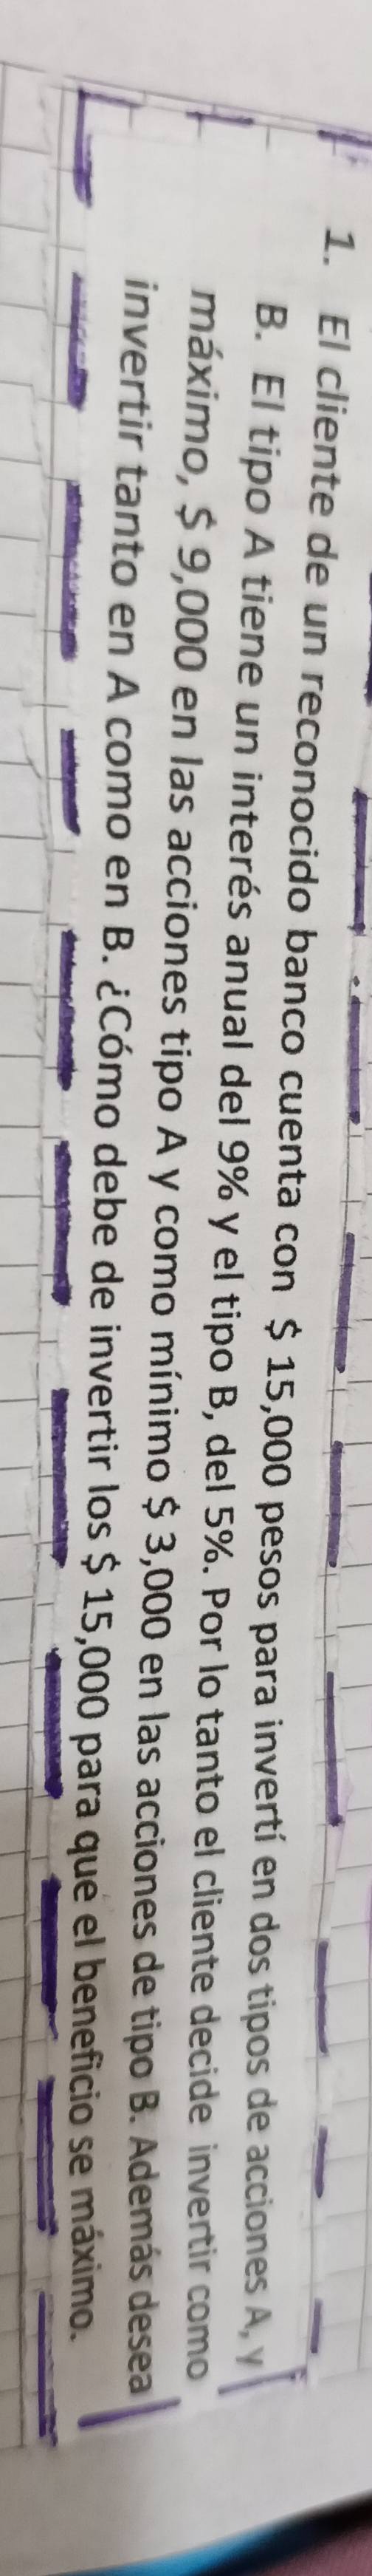 1. El cliente de un reconocido banco cuenta con $ 15,000 pesos para invertí en dos tipos de acciones A, y
B. El tipo A tiene un interés anual del 9% y el tipo B, del 5%. Por lo tanto el cliente decide invertir como
máximo, $ 9,000 en las acciones tipo A y como mínimo $ 3,000 en las acciones de tipo B. Además desea
invertir tanto en A como en B. ¿Cómo debe de invertir los $ 15,000 para que el beneficio se máximo.